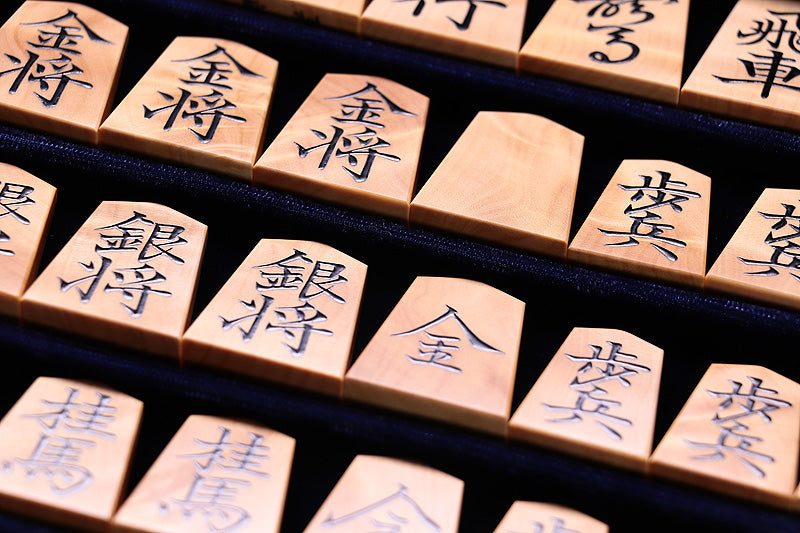 飛車
金将
金将
金将
歩兵
歩兵
銀将
銀将
全
歩兵
歩兵
桂馬
桂馬